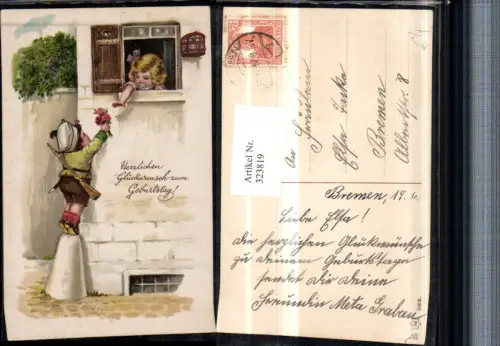 Herzlichen
Glückwunsch zum
Geburtstag!
Artikel Nr.
323819
An Fräulein
Elfa
Bremen
Albertstr. 8
Bremen, 17.
Liebe Elfa!
die herzlichen Glückwünsche
zu deinem Geburtstage
sendet dir deine
Freundin Meta Grabau